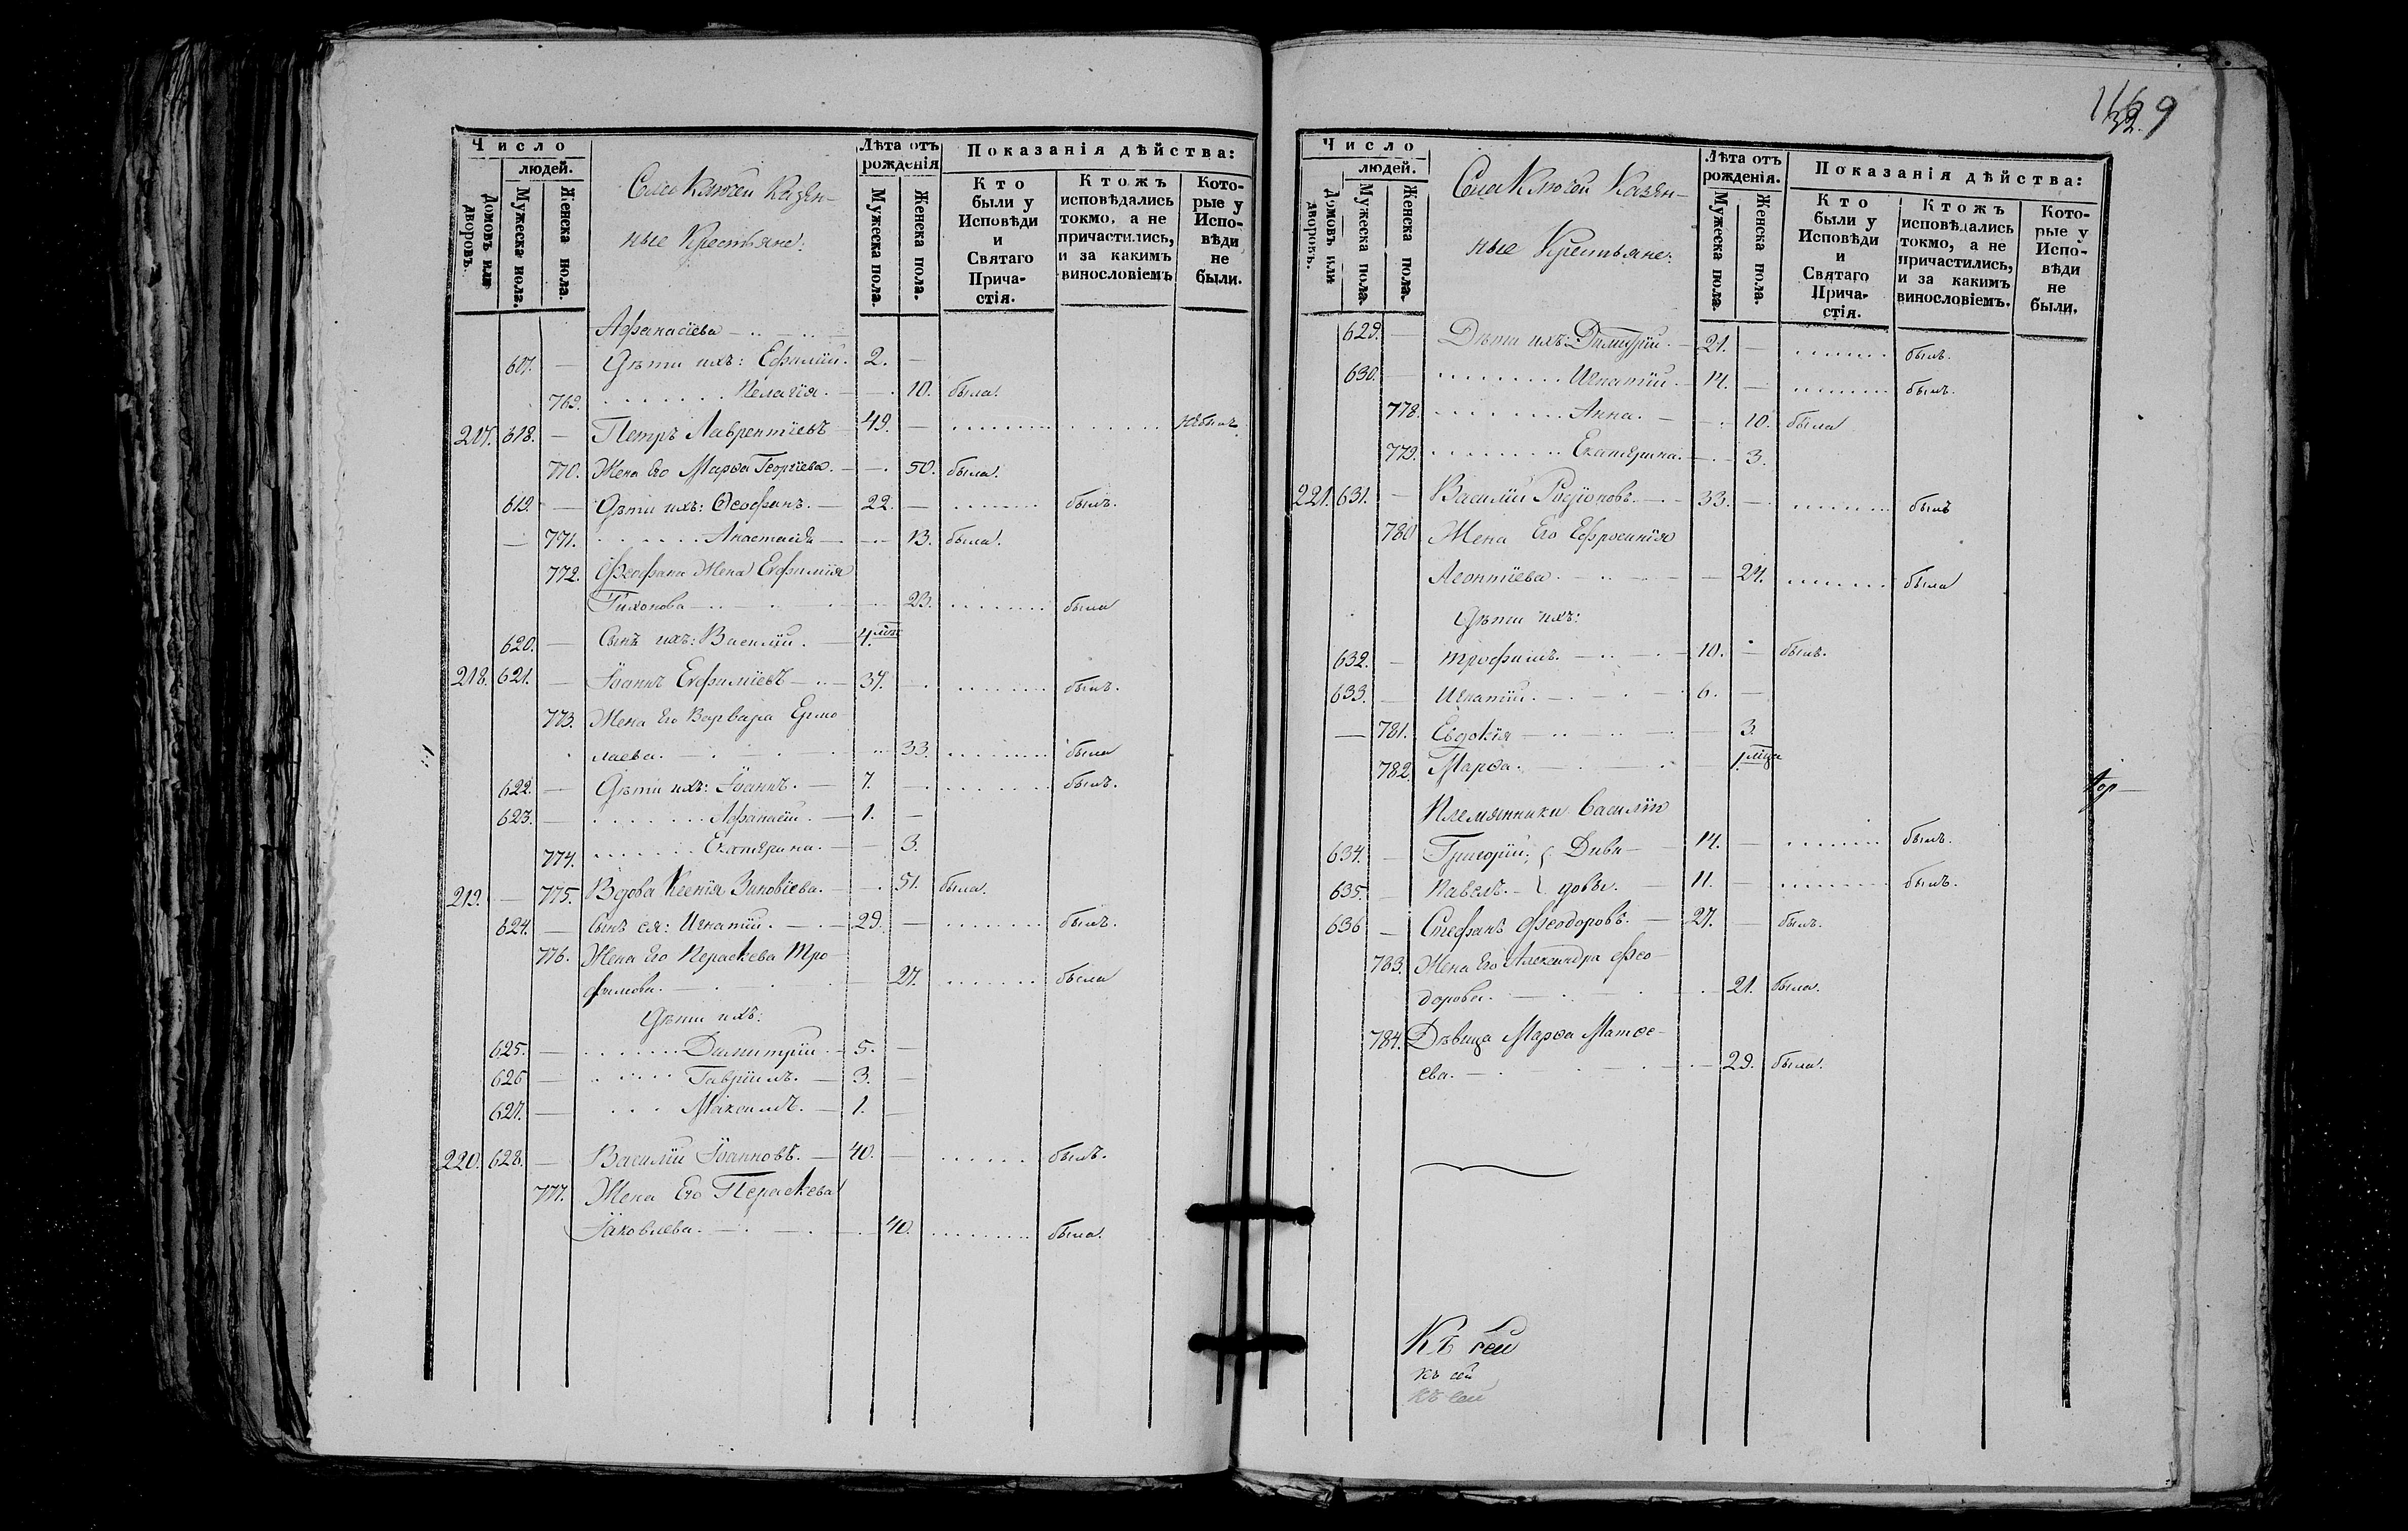 Число
людей.
Домовъ или дворовъ.
Мужеска пола.
Женска пола.
Села Ключей Казен-
ные Крестьяне:
Лѣта отъ рожденія
Мужеска пола.
Женска пола.
Показанія дѣйства:
Кто были у Исповѣди и Святаго Прича-стія.
Ктожъ исповѣдались токмо, а не причастились, и за какимъ винословіемъ
Кото-рые у Испо-вѣди не были.
Афанасіева
617. — Дѣти ихъ: Ефимій. 2. —
769. Пелагія. — 10. была.
217. 618. — Петръ Лаврентіевъ 49. — небылъ
770. Жена Его Марѳа Георгіева. — 50. была.
619. — Дѣти ихъ: Ѳеофанъ. — 22. — былъ.
— 771. Анастасія — 13. была.
772. Ѳеофана Жена Евфимія
Тихонова — 23. была
620. — Сынъ ихъ: Василій. — 4.
218. 621. — Іоаннъ Евфиміевъ — 37. — былъ.
773. Жена Его Варвара Ермо
лаева. — 33. была
622. — Дѣти ихъ: Іоаннъ. — 7. — былъ.
623. — Афанасій. — 1. —
774. Екатерина. — 3.
219. — 775. Вдова Ксенія Зиновіева. — 51. была.
624. — Сынъ ея: Игнатій. — 29. — былъ.
776. Жена Его Параскева Тро
фимова. — 27. была
Дѣти ихъ:
625. — Димитрій. — 5. —
626 — Гавріилъ. — 3. —
627. — Максимъ. — 1. —
220. 628. — Василій Іоанновъ. — 40. — былъ.
777. Жена Его Параскева
Іаковлева. — 40. была.
32.
Число
людей.
Домовъ или дворовъ.
Мужеска пола.
Женска пола.
Села Ключей Казен-
ные Крестьяне:
Лѣта отъ рожденія.
Мужеска пола.
Женска пола.
Показанія дѣйства:
Кто были у Исповѣди и Святаго Прича-стія.
Ктожъ исповѣдались токмо, а не причастились, и за какимъ винословіемъ.
Кото-рые у Испо-вѣди не были.
629. — Дѣти ихъ: Димитрій. — 21. — былъ.
630. — Игнатій. — 14. — былъ.
778. Анна. — 10. была
779. Екатерина. — 3.
221. 631. — Василій Родіоновъ. — 33. — былъ
780 Жена Его Ефросинія
Леонтіева. — 24. была
Дѣти ихъ:
632. — Трофимъ. — 10. — былъ.
633. — Игнатій. — 6. —
— 781. Евдокія — 3.
782. Марѳа. — 1
Племянники Василія
634. — Григорій. { Дави — 14. — былъ.
635. — Павелъ. — { довы. — 11. — былъ.
636 — Стефанъ Ѳеодоровъ. — 27. — былъ.
783. Жена Его Александра Ѳео-
дорова. — 21. была.
784. Дѣвица Марѳа Матѳе-
ева. — 29. была.
Къ сей
къ сей
къ сей